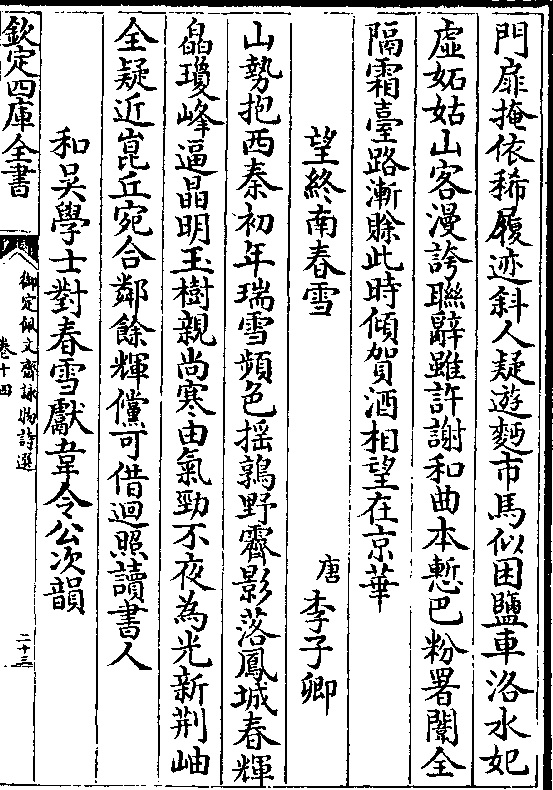 門扉掩依稀履迹斜人疑遊麪市馬似困鹽車洛水妃
虛妬姑山客漫誇聯辭雖許謝和曲本慙巴粉署闈全
隔霜臺路漸賒此時傾賀酒相望在京華
望終南春雪
唐 李子卿
山勢抱西秦初年瑞雪頻色搖鶉野霽影落鳳城春輝
皛瓊峰逼晶明玉樹親尚寒由氣勁不夜為光新荆岫
全疑近崑丘宛合鄰餘輝儻可借迴照讀書人
和吳學士對春雪獻韋令公次韻
欽定四庫全書
御定佩文齋詠物詩選
卷十四
二十三